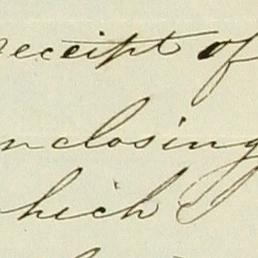 receipt of
nclosing
which I